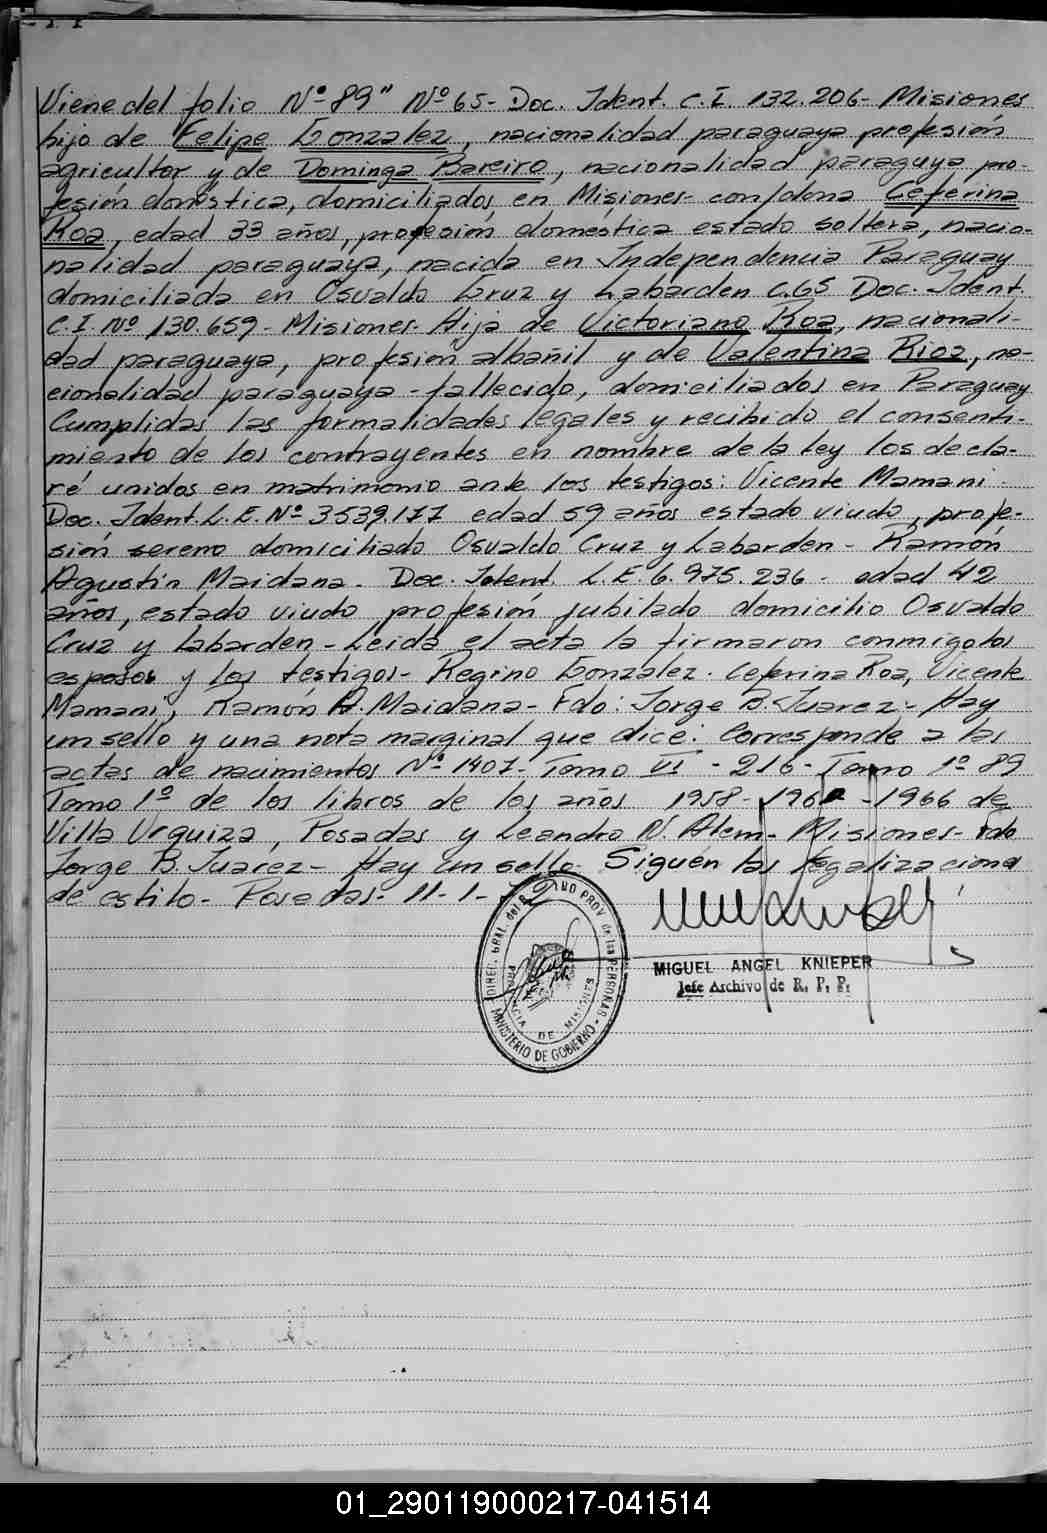 Viene del folio Nº 89" Nº 65- Doc. Ident. C.I. 132.206- Misiones
hijo de Felipe Gonzalez, nacionalidad paraguaya profesión
agricultor y de Dominga Bareiro, nacionalidad paraguya pro-
fesión doméstica, domiciliados en Misiones- con/doña Ceferina
Roa, edad 33 años, profesión doméstica estado soltera, nacio-
nalidad paraguaya, nacida en Independencia Paraguay
domiciliada en Osvaldo Cruz y Labarden C.65 Doc. Ident.
C.I. Nº 130.659- Misiones- Hija de Victoriano Roa, nacionali-
dad paraguaya, profesión albañil y de Valentina Rioz, na-
cionalidad paraguaya - fallecido, domiciliados en Paraguay
Cumplidas las formalidades legales y recibido el consenti-
miento de los contrayentes en nombre de la Ley los decla-
ré unidos en matrimonio ante los testigos: Vicente Mamani-
Doc. Ident. L.E. Nº 3539.177 edad 59 años estado viudo, profe-
sión sereno domiciliado Osvaldo Cruz y Labarden- Ramón
Agustin Maidana- Doc. Ident. L.E. 6.975.236- edad 42
años, estado viudo profesión jubilado domicilio Osvaldo
Cruz y Labarden- Leida el acta la firmaron conmigo los
esposos y los testigos- Regino Gonzalez- Ceferina Roa, Vicente
Mamani, Ramón A. Maidana- Fdo: Jorge B. Juarez- Hay
un sello y una nota marginal que dice: Corresponde a las
actas de nacimientos Nº 1407- Tomo VI - 216- Tomo 1º 89
Tomo 1º de los libros de los años 1958- 1960 - 1966 de
Villa Urquiza, Posadas y Leandro N. Alem- Misiones- Fdo
Jorge B. Juarez- Hay un sello- Siguen las legalizaciones
de estilo- Posadas- 11-1-
DIREC. GRAL. del PROV. de las PERSONAS
PROVINCIA DE MISIONES
MINISTERIO DE GOBIERNO
MIGUEL ANGEL KNIEPER
Jefe Archivo de R. P. P.
01_290119000217-041514